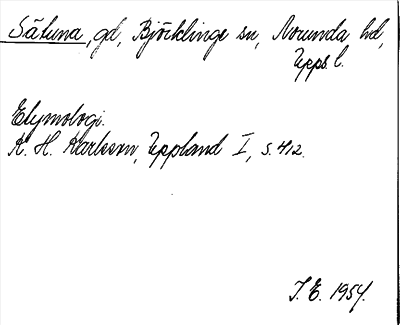 Sätuna, gd, Björklinge sn, Norunda hd,
Upps. l.
Etymologi.
K. H. Karlsson, Uppland I, s. 412.
J. E. 1954.